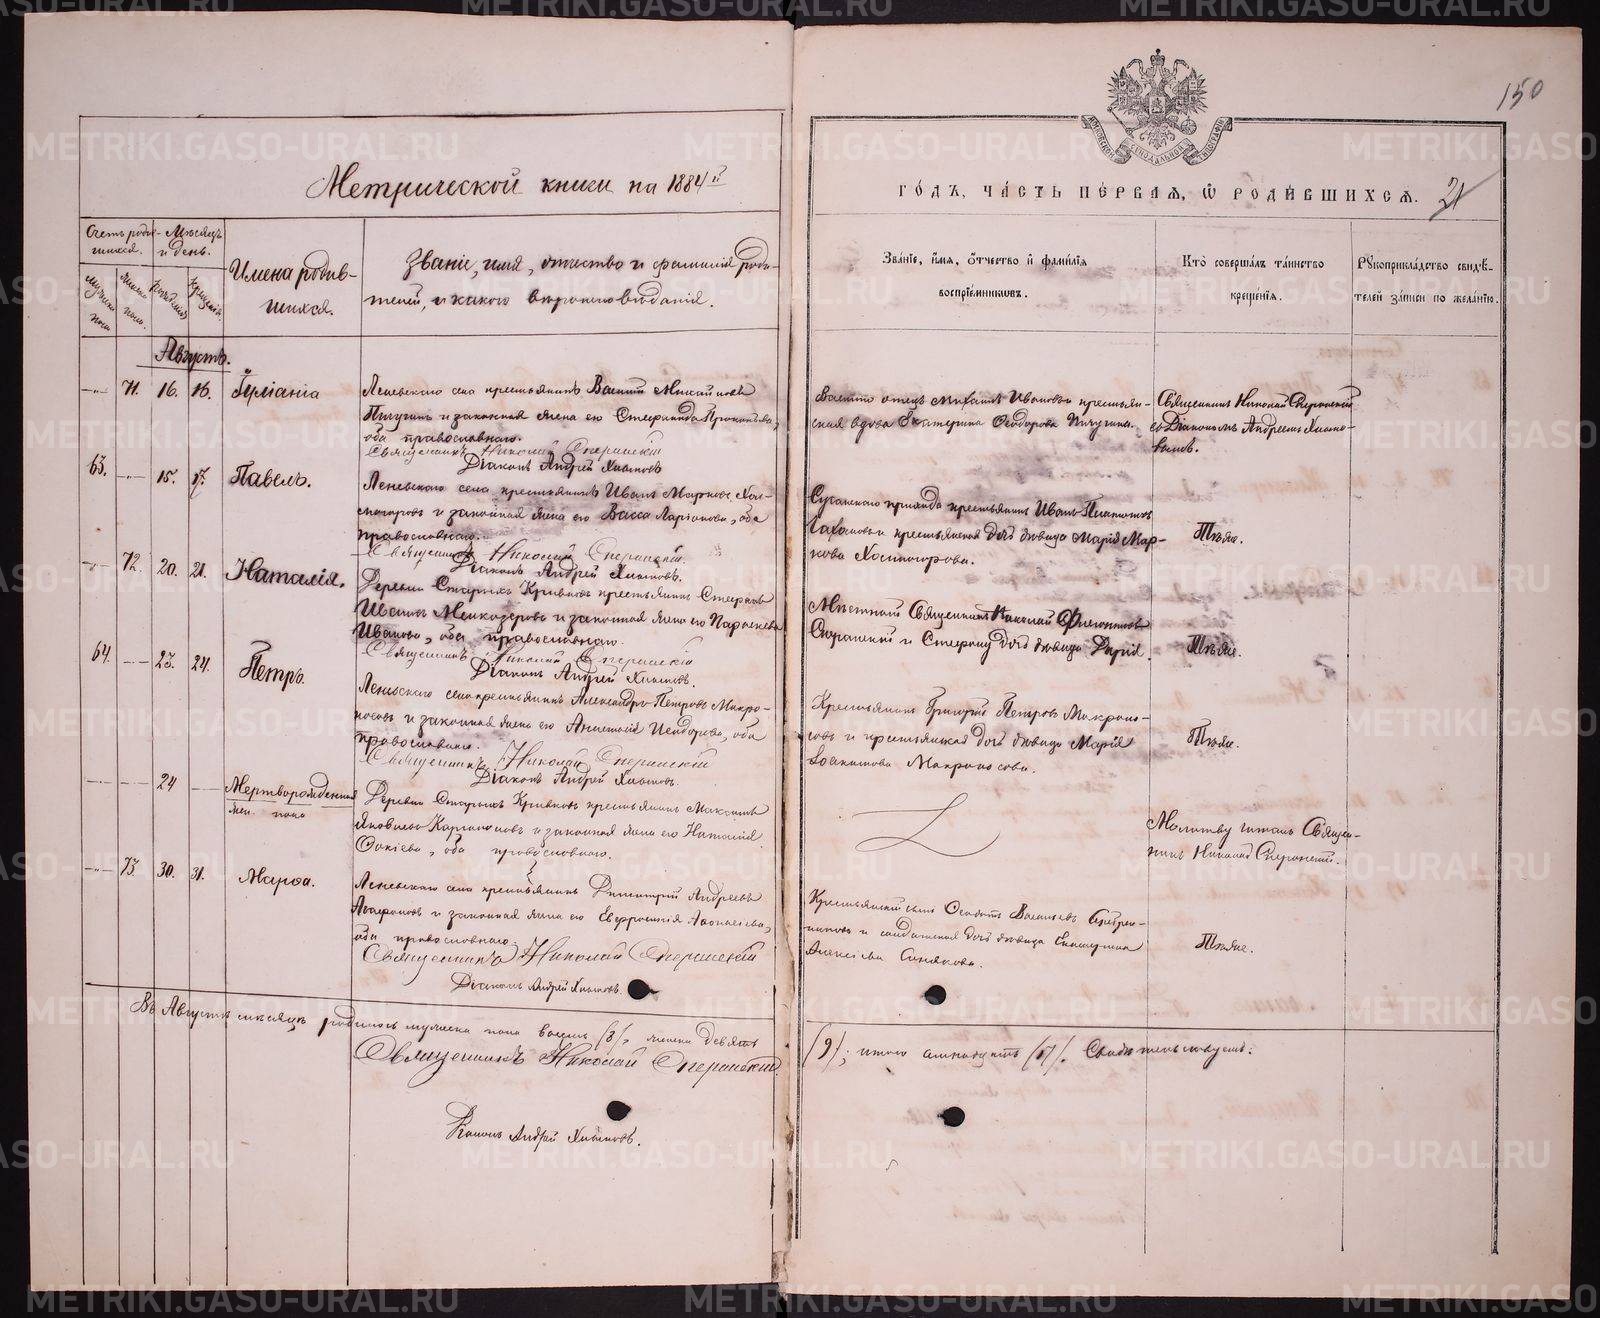 150
Метрической книги на 1884й
ГОДЪ, ЧАСТЬ ПЕРВАЯ, Ѡ РОДИВШИХСЯ.
21
Счетъ роди-
вшихся.
Мѣсяцъ
и день.
Мужеска
пола.
Женска
пола.
Рожденія
Крещенія.
Имена родив-
шихся.
Званіе, имя, отчество и фамилія роди-
телей, и какого вѣроисповѣданія.
Званіе, имя, отчество и фамилія
воспріемниковъ.
Кто совершалъ таинство
крещенія.
Рукоприкладство свидѣ-
телей записи по желанію.
Августъ.
71. 16. 16. Іуліанія
Леневскаго села крестьянинъ Василій Михайловъ
Пичугинъ и законная жена его Стефанида Прокопьева,
оба православнаго.
Священникъ Николай Сперанскій
Діаконъ Андрей Хлыновъ
отецъ Михаилъ Ивановъ крестьян-
ская вдова Екатерина Ѳеодорова Пичугина.
Священникъ Николай Сперанскій
съ Діакономъ Андреемъ Хлыно-
вымъ.
63. 15. 17. Павелъ.
Леневскаго села крестьянинъ Иванъ Марковъ Хол-
могоровъ и законная жена его Васса Ларіонова, оба
православнаго.
Священникъ Николай Сперанскій.
Діаконъ Андрей Хлыновъ.
прихода крестьянинъ Иванъ
и крестьянская дочь дѣвица Марія Мар-
кова Холмогорова.
Тѣже.
72. 20. 21. Наталія.
Деревни Старыхъ Кривковъ крестьянинъ Стефанъ
Ивановъ Мелкозеровъ и законная жена его Параскева
Иванова, оба православнаго.
Священникъ Николай Сперанскій
Діаконъ Андрей Хлыновъ.
Мѣстный Священникъ Николай
Сперанскій и Стефана дочь дѣвица Дарія.
Тѣже.
64. 23. 24. Петръ.
Леневскаго села крестьянинъ Александръ Петровъ Макро-
носовъ и законная жена его Анастасія Исидорова, оба
православнаго.
Священникъ Николай Сперанскій
Діаконъ Андрей Хлыновъ.
Крестьянинъ Григорій Петровъ Макроно-
совъ и крестьянская дочь дѣвица Марія
Іоакимова Макроносова.
Тѣже.
24 Мертворожденная
жен. пола
Деревни Старыхъ Кривковъ крестьянинъ Максимъ
Яковлевъ и законная жена его Наталія
оба православнаго.
Молитву читалъ Священ-
никъ Николай Сперанскій.
73. 30. 31. Марѳа.
Леневскаго села крестьянинъ Димитрій Андреевъ
Агафоновъ и законная жена его Евфросинія Аѳанасьева,
оба православнаго.
Священникъ Николай Сперанскій
Діаконъ Андрей Хлыновъ.
Крестьянскій сынъ Васильевъ
и солдатская дочь дѣвица Екатерина
Алексіева Синякова.
Тѣже.
Въ Августѣ мѣсяцѣ родилось мужеска пола восемь (8), женска девять
(9); итого семнадцать (17). Свидѣтельствуемъ:
Священникъ Николай Сперанскій.
Діаконъ Андрей Хлыновъ.
METRIKI.GASO-URAL.RU